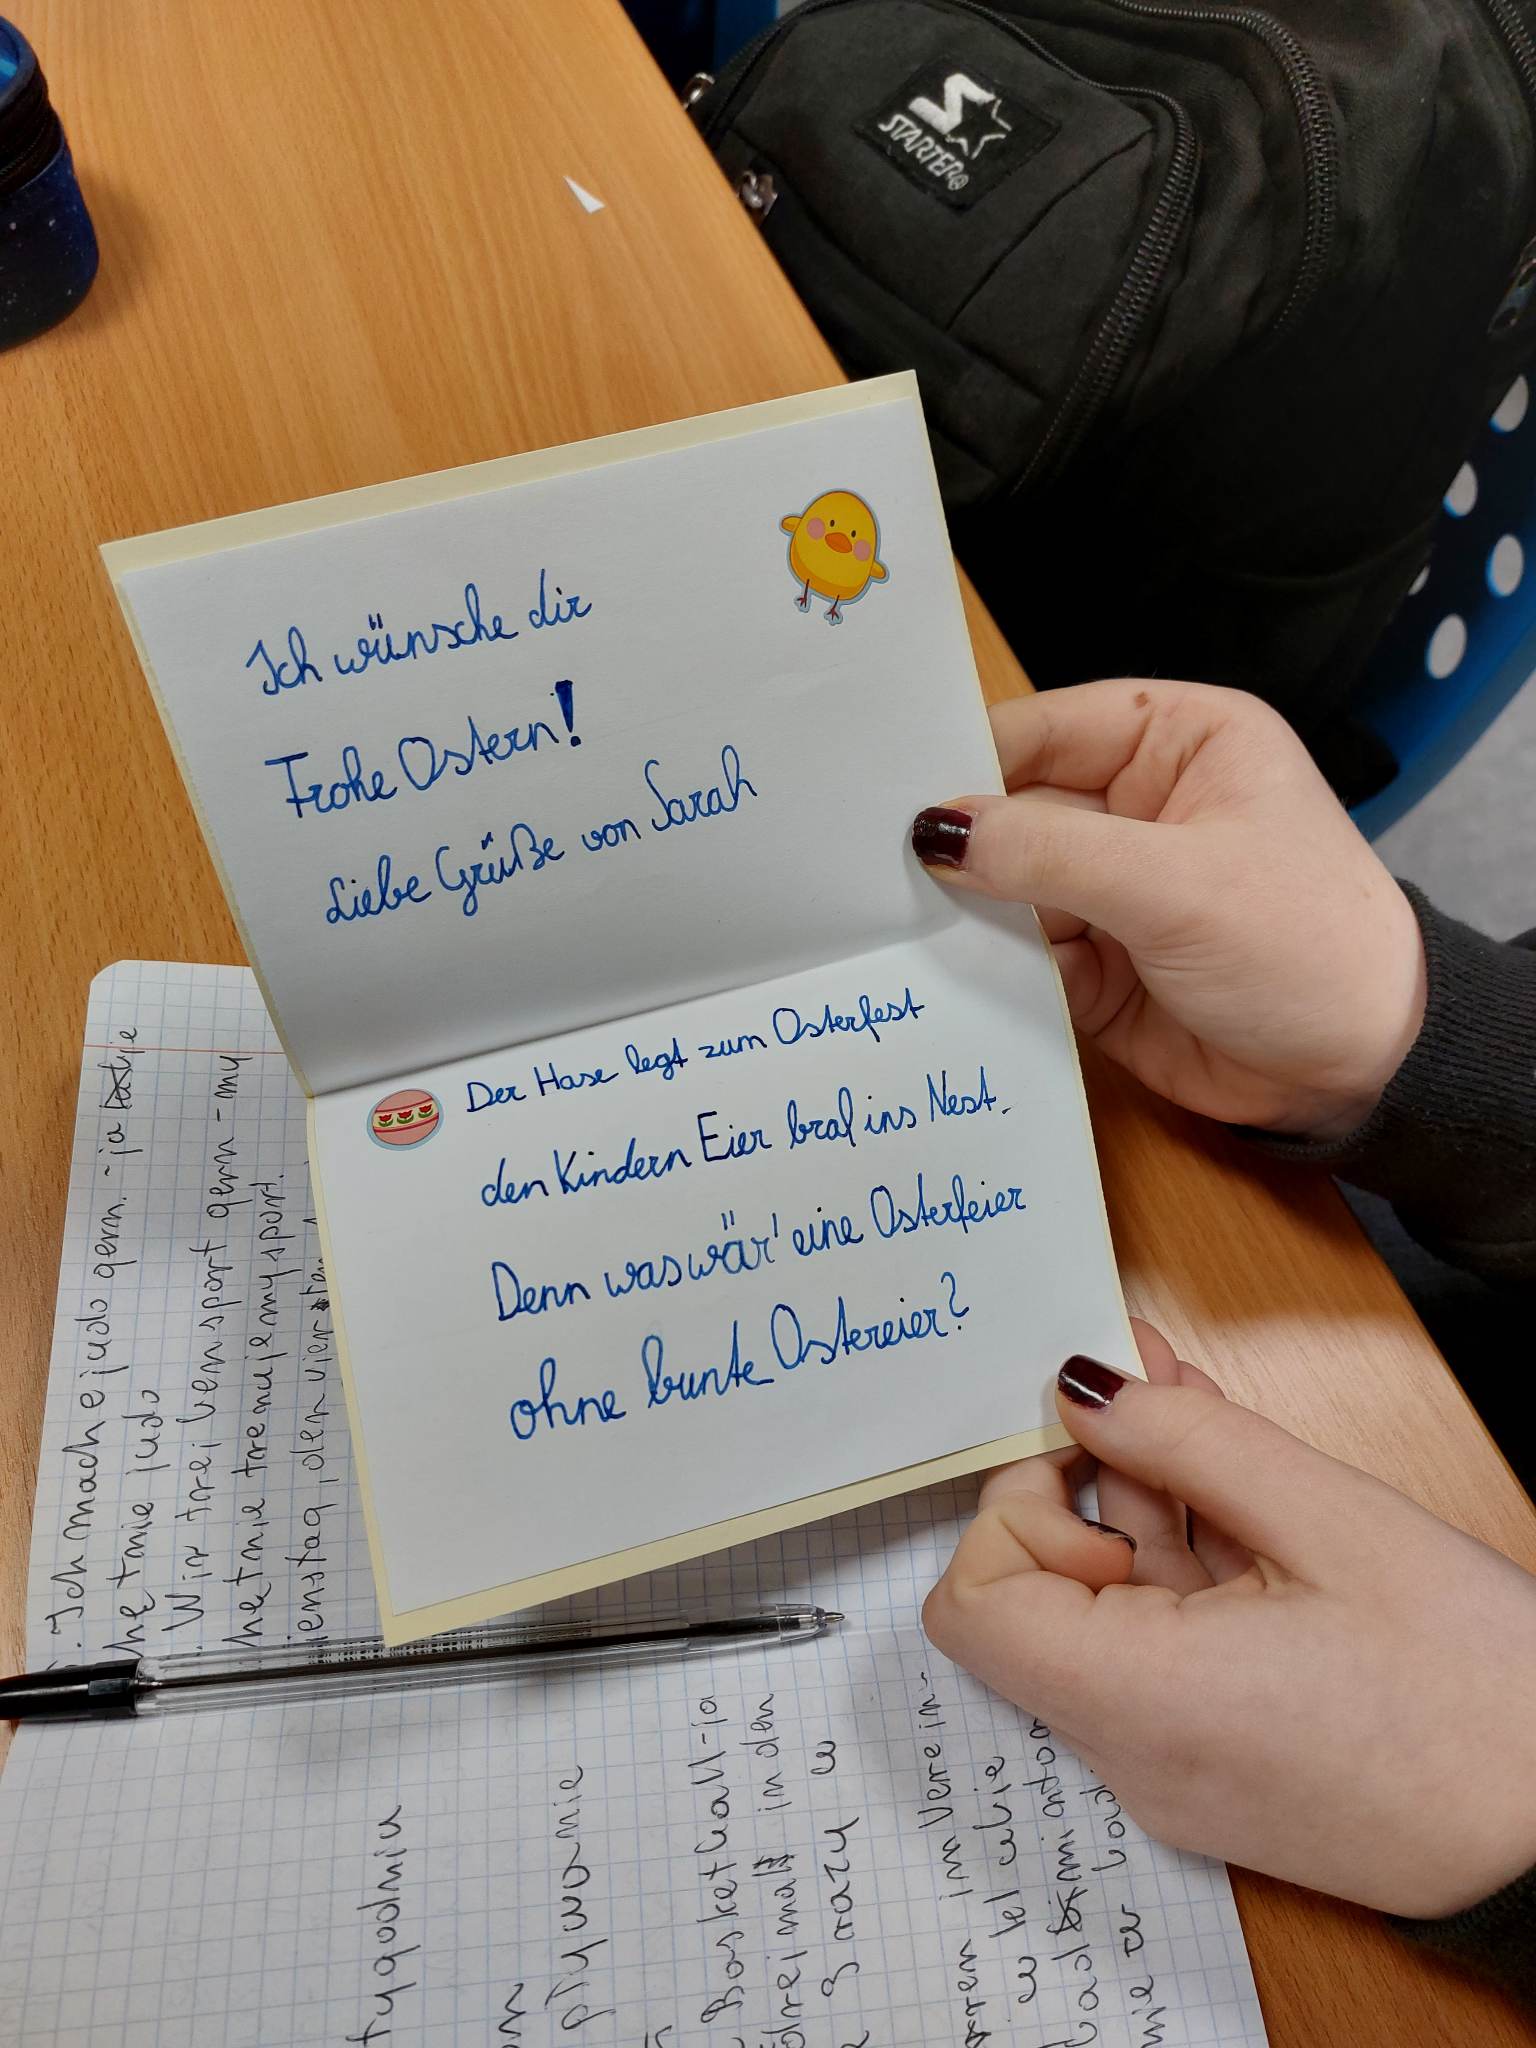 STARTER
Ich wünsche dir
Frohe Ostern!
Liebe Grüße von Sarah
Der Hase legt zum Osterfest
den Kindern Eier braf ins Nest.
Denn was wär' eine Osterfeier
ohne bunte Ostereier?
Ich mache judo gern. - ja
chętnie judo
Wir treiben sport gern - my
chętnie trenujemy sport.
ienstag, den vier
tygodniu
pływanie
Basketball - ja
dreimal in den
3 razy w
im Verein -
w